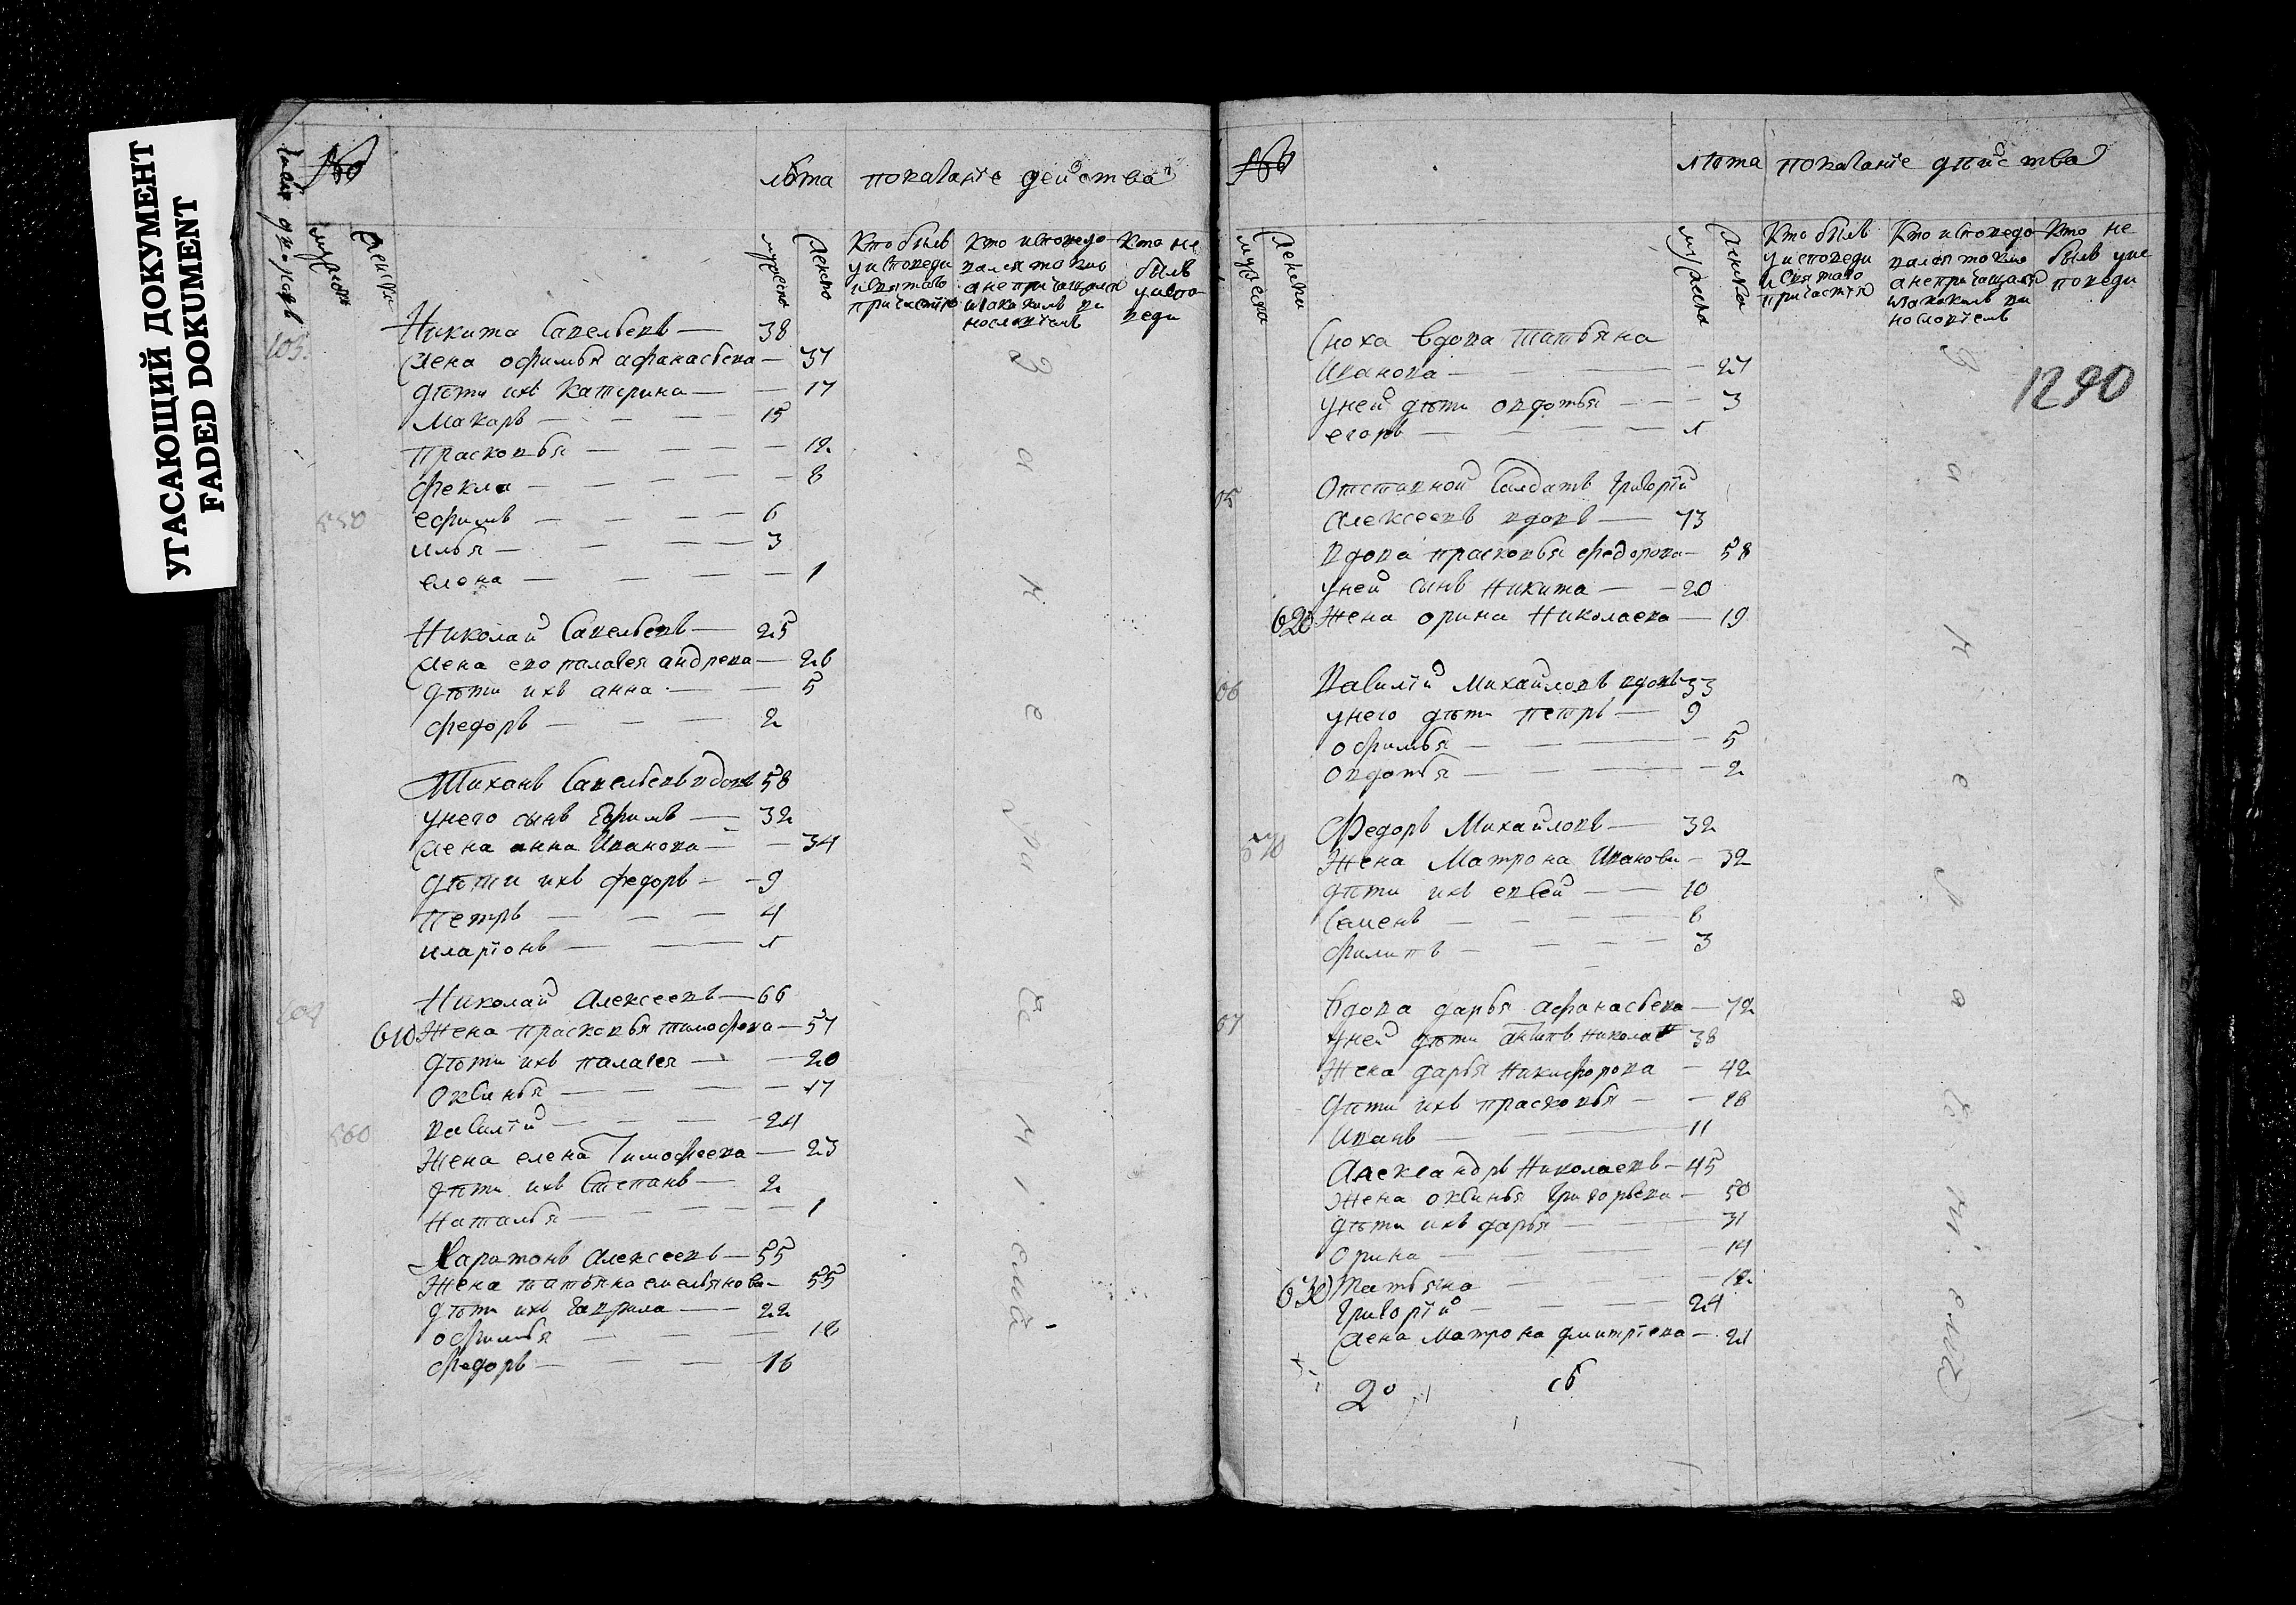 УГАСАЮЩИЙ ДОКУМЕНТ
FADED DOKUMENT
№
лѣта показанїе действа
мужеска
женска
Кто былъ
у исповеди
и святаго
причастїя
Кто исповедо
вался токмо
а не причащался
и за какимъ ви
нословїемъ
Кто не
былъ
у испо
веди
103.
Никита Савельевъ — 38
Жена офимья афанасьева — 37
дѣти ихъ Катерина — 17
Макаръ — 15
Прасковья — 12
Фекла — 8
550
ефимъ — 6
илья — 3
елена — 1
Николай Савельевъ — 25
Жена палагея андреева — 26
дѣти ихъ анна — 5
федоръ — 2
Тихонъ Савельевъ вдовъ 58
у него сынъ Ефимъ — 32
Жена анна Иванова — 34
дѣти ихъ федоръ — 9
петръ — 4
иларїонъ — 1
104
Николай Алексеевъ — 66
610 Жена прасковья тимофеева — 57
дѣти ихъ палагея — 20
Оксинья — 17
василїй — 24
560
Жена елена Тимофеева — 23
дѣти ихъ Степанъ — 2
Наталья — 1
Харитонъ Алексеевъ — 55
Жена татьяна емельянова — 55
дѣти ихъ гаврила — 22
офимья — 18
федоръ — 16
№
лѣта показанїе дѣйства
мужеска
женска
Кто былъ
у исповеди
и святаго
причастїя
Кто исповедо
вался токмо
а не причащался
и за какимъ ви
нословїемъ
Кто не
былъ у ис
поведи
1290
Сноха вдова татьяна
Иванова — 27
у ней дѣти овдотья — 3
егоръ — 1
05
Отставной Салдатъ Григорїй
Алексеевъ вдовъ — 73
Вдова прасковья федорова — 58
у ней сынъ Никита — 20
620 Жена орина Николаева — 19
06
Василїй Михайловъ вдовъ 33
у него дѣти петръ — 9
офимья — 5
овдотья — 2
Федоръ Михайловъ — 32
570
Жена Матрона Иванова — 32
дѣти ихъ евсей — 10
Семенъ — 6
филипъ — 3
07
Вдова дарья афанасьева — 72
у ней дѣти антипъ Николаевъ 38
Жена дарья Никифорова — 42
дѣти ихъ прасковья — 18
Иванъ — 11
Александръ Николаевъ — 45
Жена оксинья Григорьева — 50
дѣти ихъ дарья — 31
Орина — 14
630 Татьяна — 12
Григорїй — 24
Жена Матрона дмитрїева — 21
20